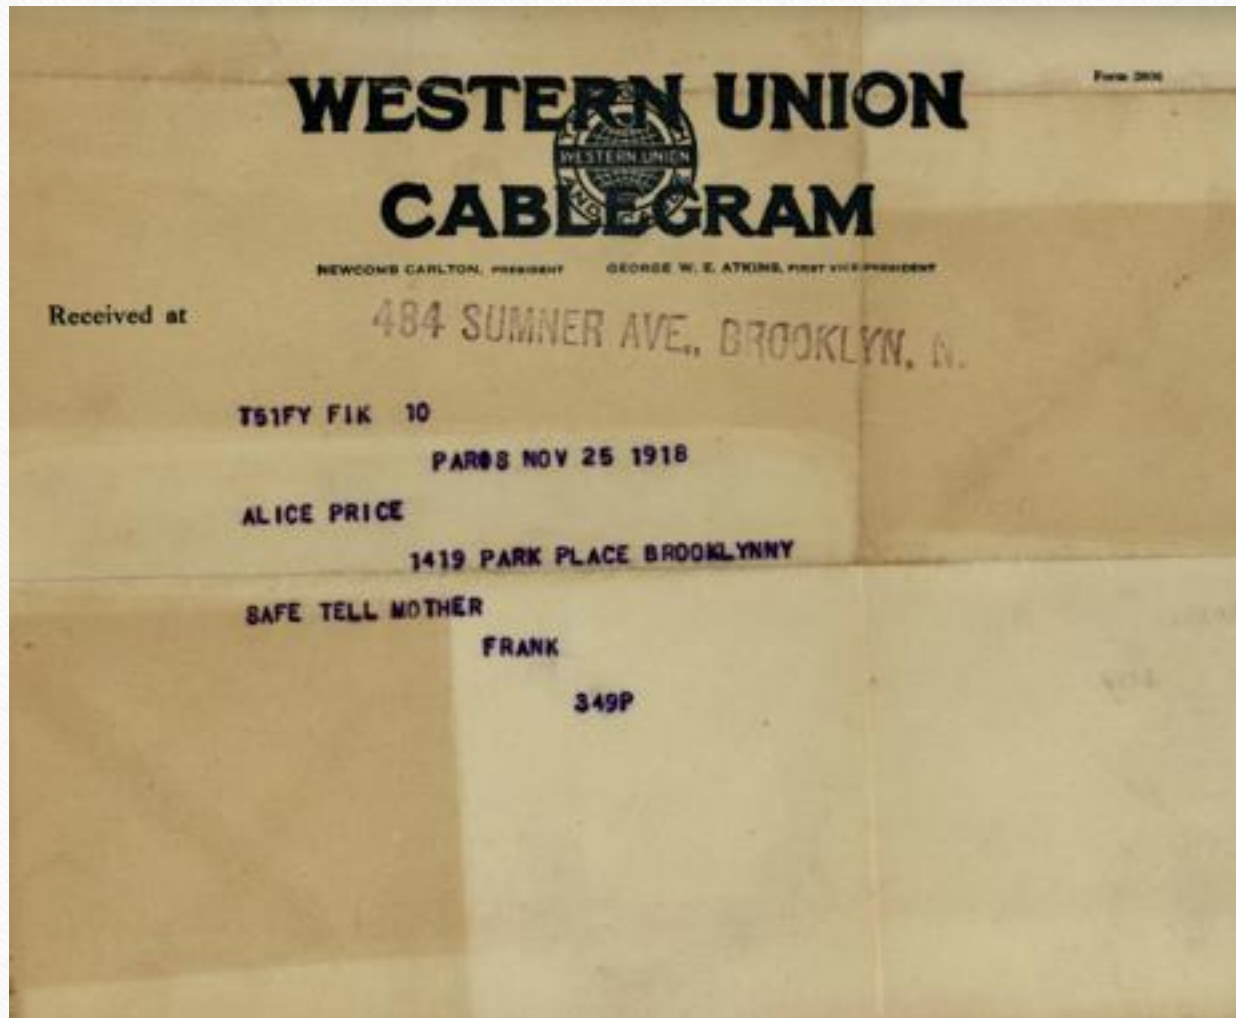 Form
WESTERN UNION
WESTERN UNION
CABLEGRAM
NEWCOMB CARLTON, PRESIDENT GEORGE W. E. ATKINS, FIRST VICE-PRESIDENT
Received at 484 SUMNER AVE., BROOKLYN, N.
T51FY FIK 10
NOV 25 1918
ALICE PRICE
1419 PARK PLACE BROOKLYNNY
SAFE TELL MOTHER
FRANK
349P